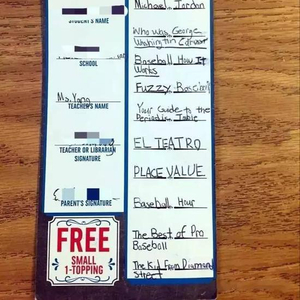 STUDENT'S NAME
SCHOOL
Ms. Yang
TEACHER'S NAME
TEACHER OR LIBRARIAN
SIGNATURE
PARENT'S SIGNATURE
FREE
SMALL
1-TOPPING
Michael Jordan
Who was George
Washington Carver
Baseball How It
Works
Fuzzy Baseball
Your Guide to the
Periodic Table
EL TEATRO
PLACE VALUE
Baseball Hour
The Best of Pro
Baseball
The Kid From Diamond
Street